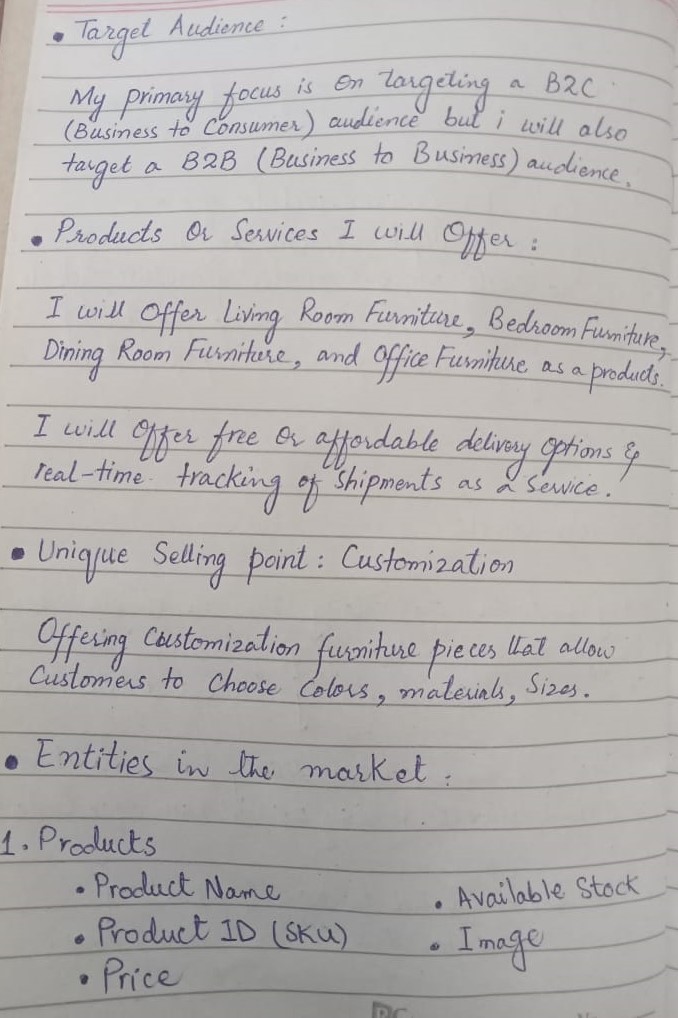 • Target Audience :
My primary focus is on targeting a B2C
(Business to Consumer) audience but i will also
target a B2B (Business to Business) audience.
• Products Or Services I will Offer :
I will Offer Living Room Furniture, Bedroom Furniture,
Dining Room Furniture, and Office Furniture as a products.
I will Offer free Or affordable delivery options &
real-time tracking of Shipments as a Service.
• Unique Selling point : Customization
Offering Customization furniture pieces that allow
Customers to Choose Colors, materials, Sizes.
• Entities in the market :
1. Products
• Product Name • Available Stock
• Product ID (SKU) • Image
• Price